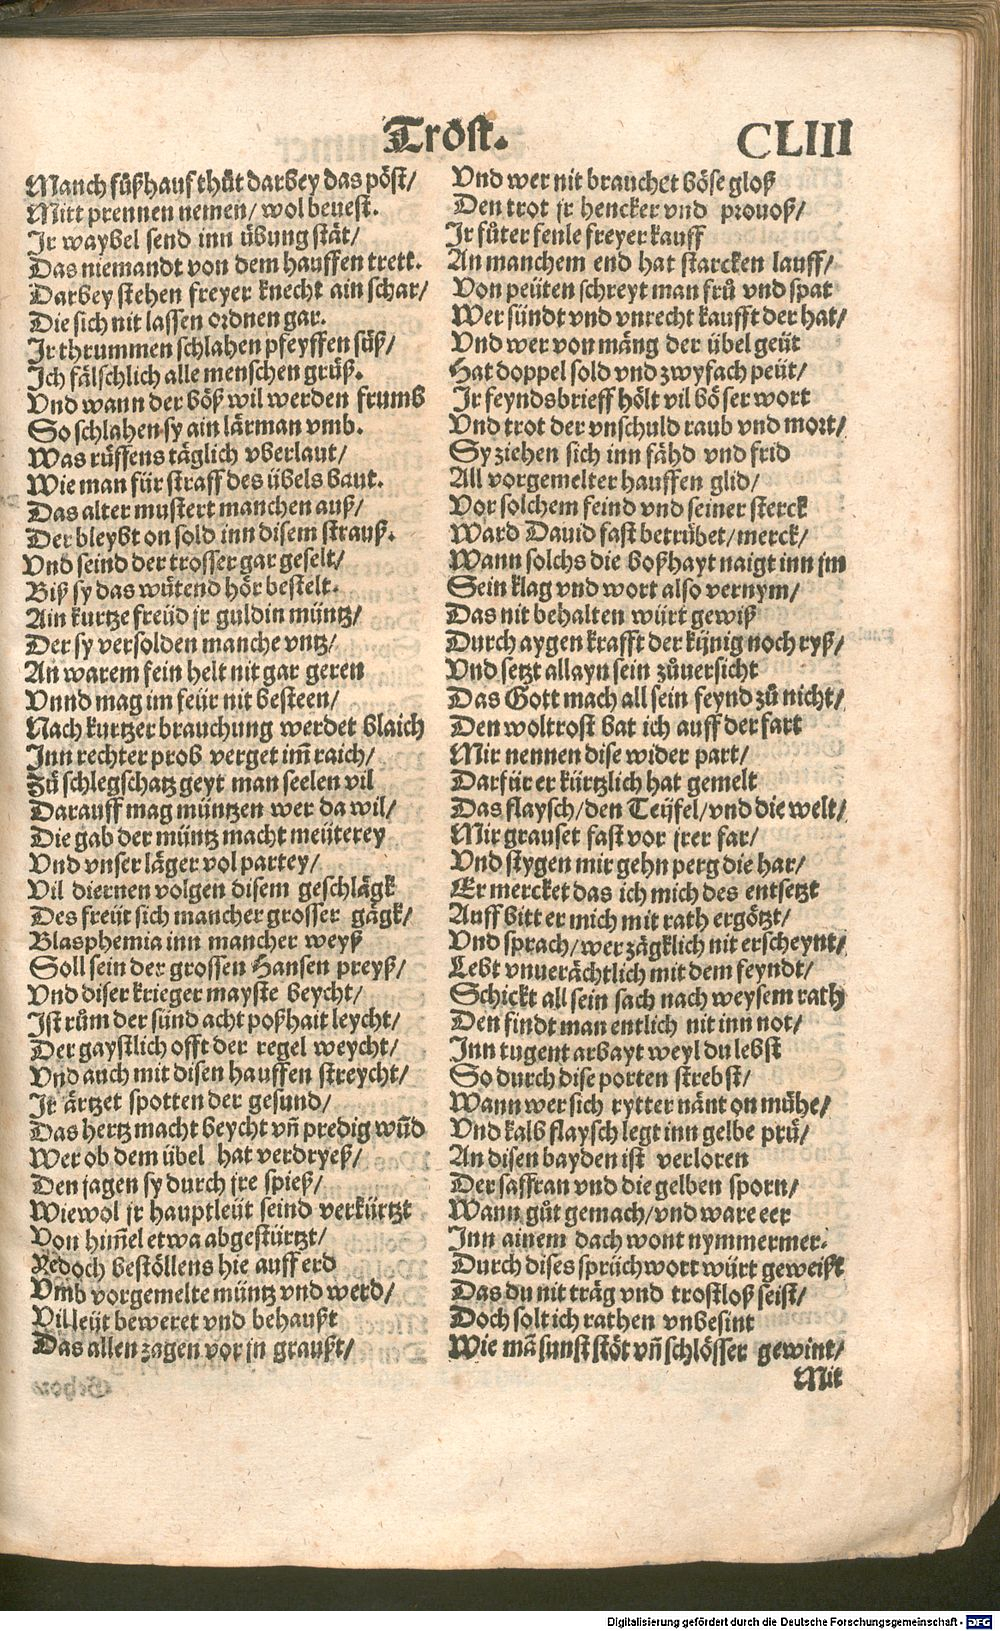 Tröst.
CLIII
Manch fůßhauf thůt darbey das pöst/
Mitt prennen nemen/ wol bevest.
Jr waybel send inn übung stät/
Das niemandt von dem hauffen trett.
Darbey stehen freyer knecht ain schar/
Die sich nit lassen ordnen gar.
Jr thrummen schlahen pfeyffen süß/
Jch fälschlich alle menschen grüß.
Vnd wann der böß wil werden frumb
So schlahen sy ain lärman vmb.
Was růffens täglich vberlaut/
Wie man für straff des übels baut.
Das alter mustert manchen auß/
Der bleybt on sold inn disem strauß.
Vnd seind der trosser gar geselt/
Biß sy das wütend hör bestelt.
Ain kurtze freüd jr guldin müntz/
Der sy versolden manche vntz/
An warem fein helt nit gar geren
Vnnd mag im feür nit besteen/
Nach kurtzer brauchung werdet blaich
Jnn rechter prob verget im̃ raich/
Zů schlegschatz geyt man seelen vil
Darauff mag müntzen wer da wil/
Die gab der müntz macht meüterey
Vnd vnser läger vol partey/
Vil diernen volgen disem geschlägk
Des freüt sich mancher grosser gägk/
Blasphemia inn mancher weyß
Soll sein der grossen Hansen preyß/
Vnd diser krieger mayste beycht/
Jst rům der sünd acht poßhait leycht/
Der gaystlich offt der regel weycht/
Vnd auch mit disen hauffen streycht/
Jr ärtzet spotten der gesund/
Das hertz macht beycht vn̄ predig wūd
Wer ob dem übel hat verdryeß/
Den jagen sy durch jre spieß/
Wiewol jr hauptleüt seind verkürtzt
Von him̃el etwa abgestürtzt/
Yedoch bestöllens hie auff erd
Vmb vorgemelte müntz vnd werd/
Vil leüt beweret vnd behaußt
Das allen zagen vor jn graußt/
Vnd wer nit brauchet böse gloß
Den trot jr hencker vnd provoß/
Jr fůter fenle freyer kauff
An manchem end hat starcken lauff/
Von peüten schreyt man frů vnd spat
Wer sündt vnd vnrecht kaufft der hat/
Vnd wer von mäng der übel geüt
Hat doppel sold vnd zwyfach peüt/
Jr feyndsbrieff hölt vil böser wort
Vnd trot der vnschuld raub vnd mort/
Sy ziehen sich inn fähd vnd frid
All vorgemelter hauffen glid/
Vor solchem feind vnd seiner sterck
Ward Dauid fast betrübet/ merck/
Wann solchs die boßhayt naigt inn jm
Sein klag vnd wort also vernym/
Das nit behalten würt gewiß
Durch aygen krafft der kijnig noch ryß/
Vnd setzt allayn sein zůuersicht
Das Gott mach all sein feynd zů nicht/
Den woltrost bat ich auff der fart
Mir nennen dise wider part/
Darfür er kürtzlich hat gemelt
Das flaysch/ den Teijfel/ vnd die welt/
Mir grauset fast vor jrer far/
Vnd stygen mir gehn perg die har/
Er mercket das ich mich des entsetzt
Auff bitt er mich mit rath ergötzt/
Vnd sprach/ wer zägklich nit erscheynt/
Lebt vnuerächtlich mit dem feyndt/
Schickt all sein sach nach weysem rath
Den findt man entlich nit inn not/
Jnn tugent arbayt weyl du lebst
So durch dise porten strebst/
Wann wer sich rytter nänt on mühe/
Vnd kalb flaysch legt inn gelbe prů/
An disen bayden ist verloren
Der saffran vnd die gelben sporn/
Wann gůt gemach/ vnd ware eer
Jnn ainem dach wont nymmermer.
Durch dises sprüchwort würt geweißt
Das du nit träg vnd trostloß seist/
Doch solt ich rathen vnbesint
Wie mā sunst stöt vn̄ schlösser gewint/
Mit
Digitalisierung gefördert durch die Deutsche Forschungsgemeinschaft - DFG